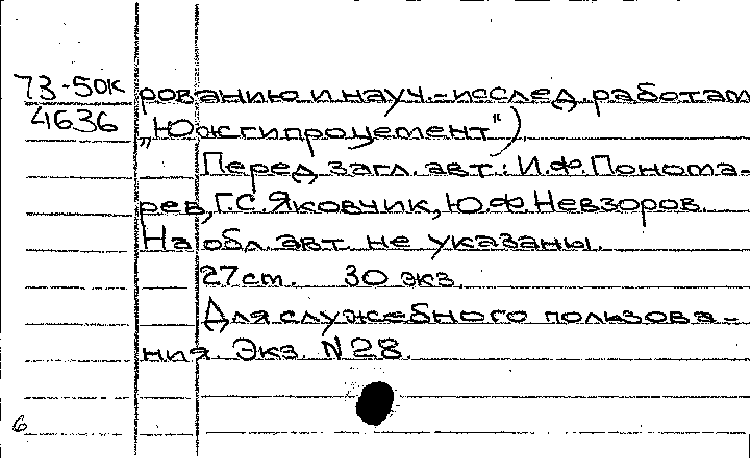 73-50к
4636
рованию и науч.-исслед. работам
„Южгипроцемент“)
Перед загл. авт.: И.Ф. Понома-
рев, Г.С. Яковчик, Ю.Ф. Невзоров.
На обл. авт. не указаны.
27 ст. 30 экз.
Для служебного пользова-
ния. Экз. N 28.
6